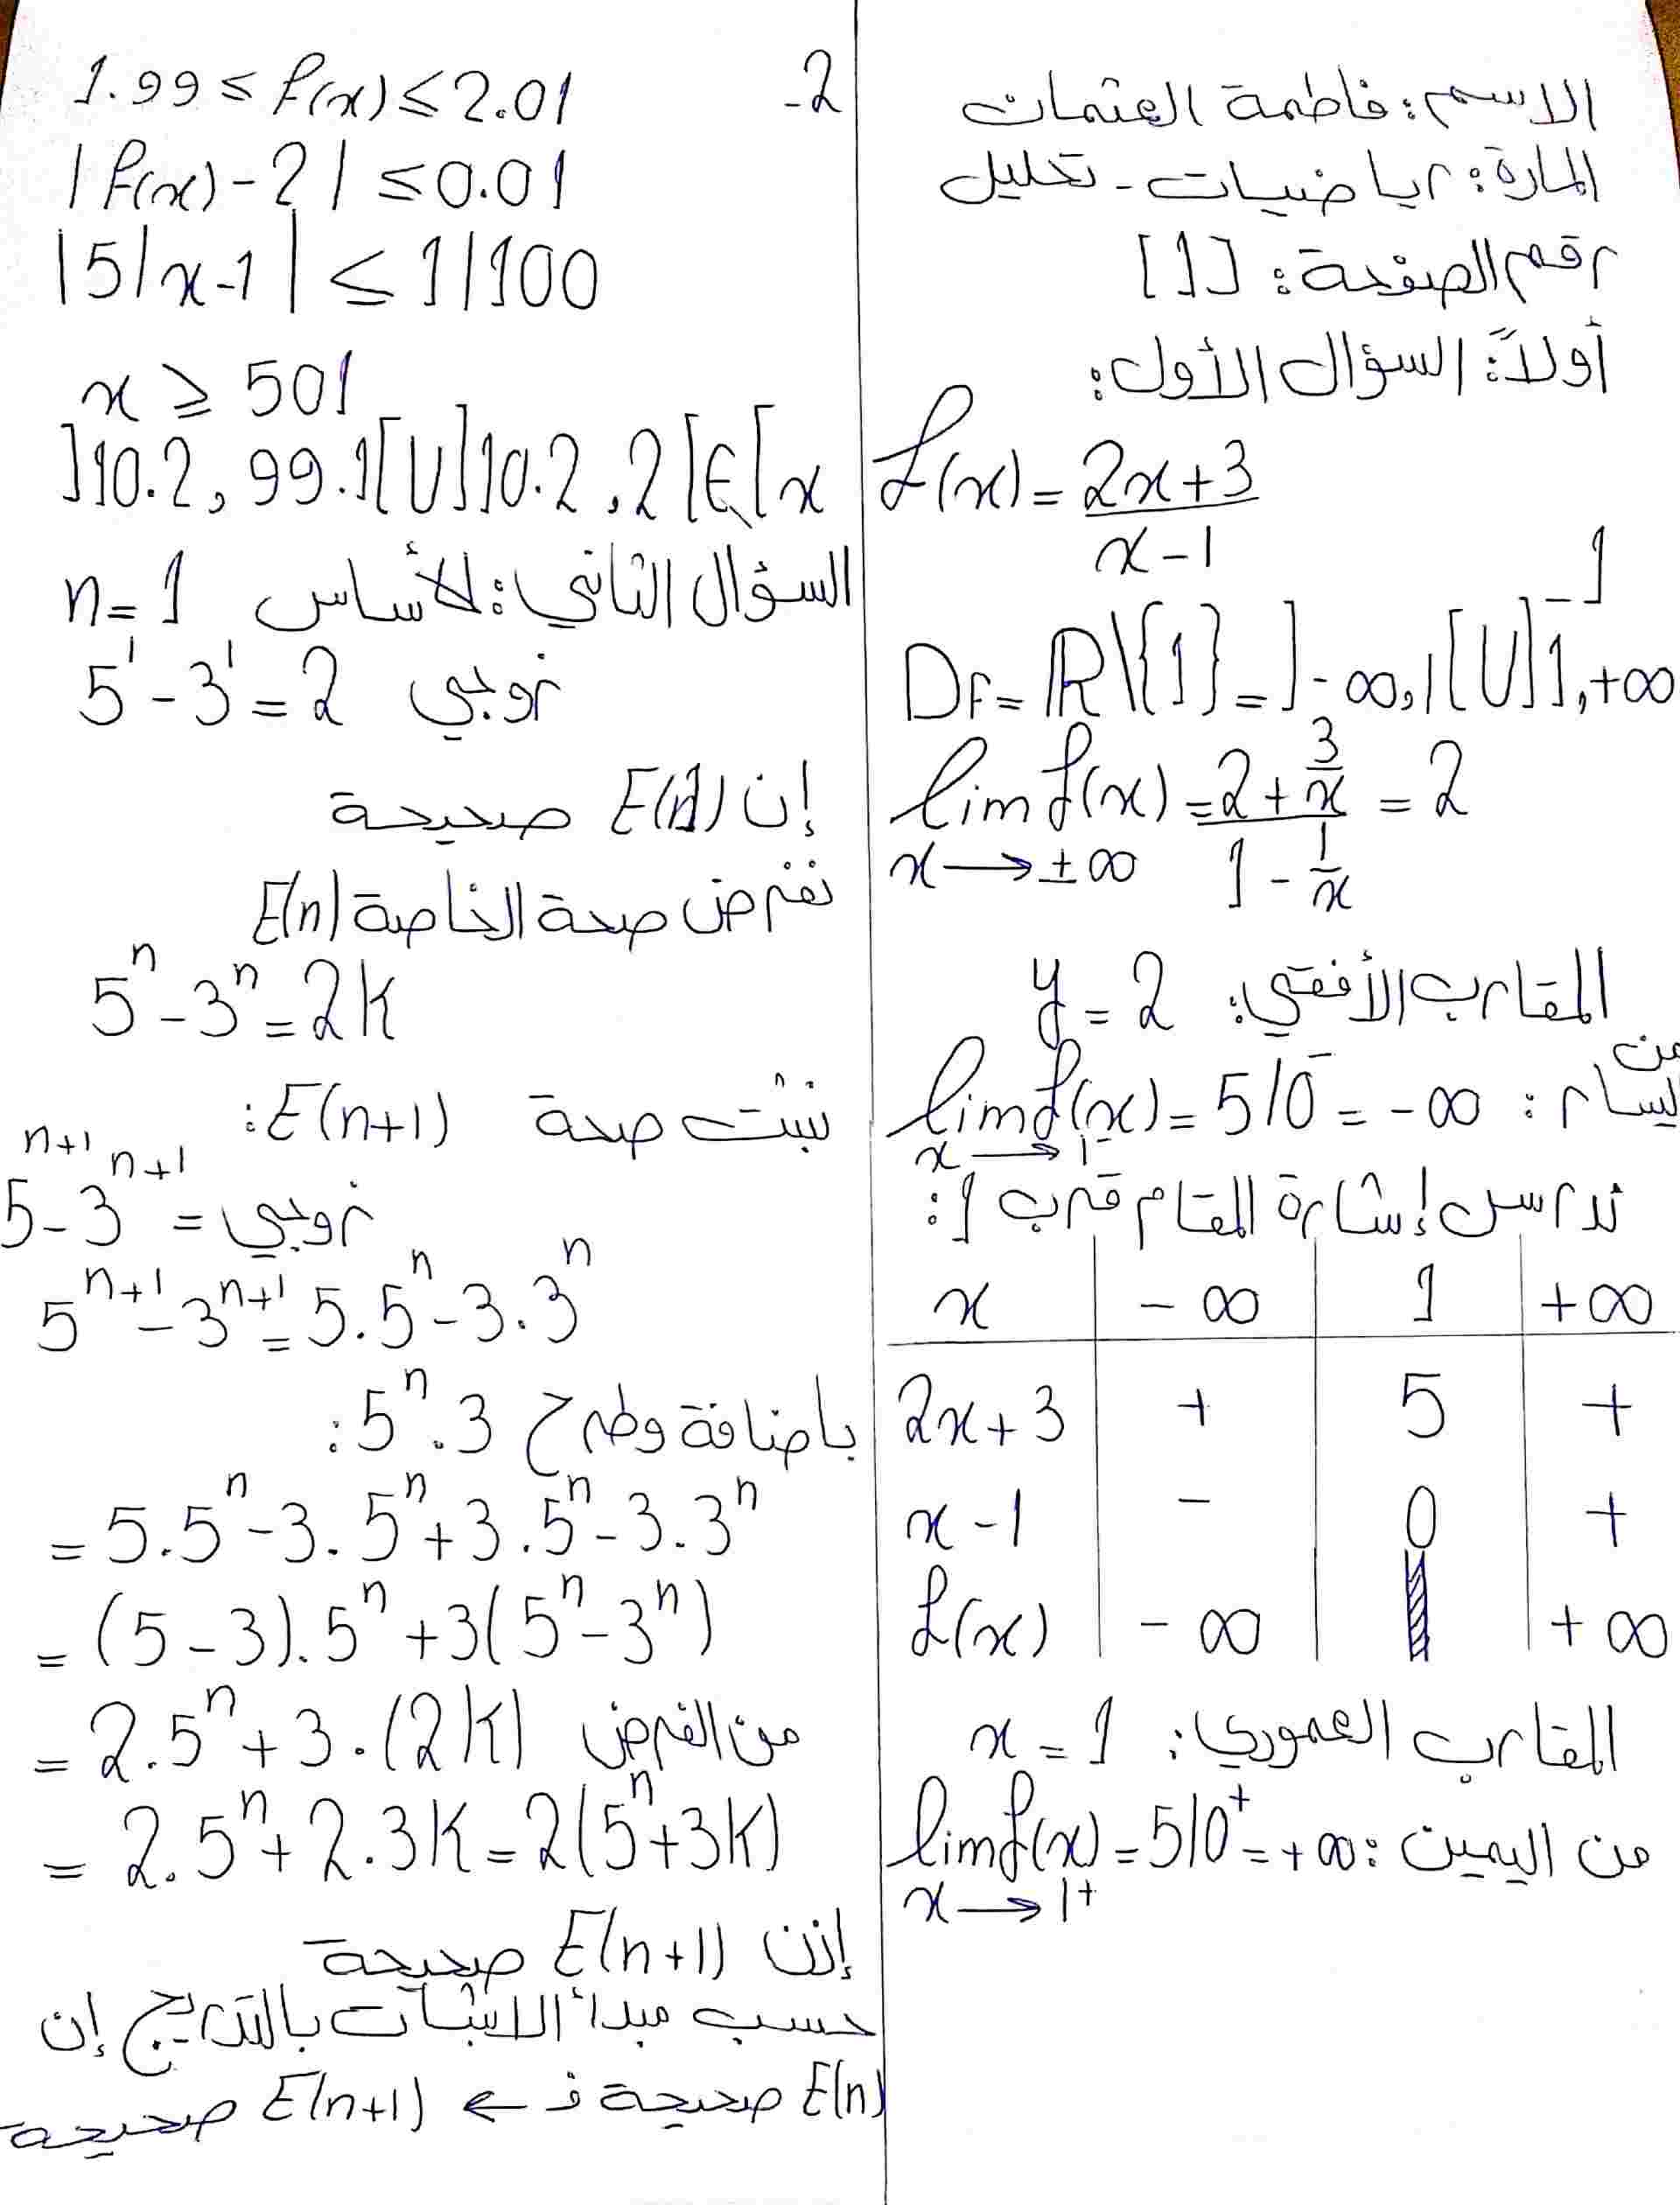 الاسم: فاطمة العتمات
المادة: رياضيات - تحليل
رقم الصفحة: [1]
أولاً: السؤال الأول:
f(x) = 2x+3 / x-1
1-
Df = R\{1} = ]-∞, 1[ U ]1, +∞
lim f(x) = 2 + 3/x / 1 - 1/x = 2
x → ±∞
المقارب الأفقي: y = 2
من يسار: lim f(x) = 5/0⁻ = -∞
x → 1⁻
ندرس إشارة المقام قرب 1:
x | -∞ | 1 | +∞
2x+3 | + | 5 | +
x-1 | - | 0 | +
f(x) | -∞ | | +∞
المقارب العمودي: x = 1
من اليمين: lim f(x) = 5/0⁺ = +∞
x → 1⁺
2-
1.99 ≤ f(x) ≤ 2.01
|f(x) - 2| ≤ 0.01
|5/x-1| ≤ 1/100
x ≥ 501
]10.2, 99.1[U]10.2, 2[∈[x
السؤال الثاني: لأساس n = 1
5¹ - 3¹ = 2 زوجي
إن E(1) صحيحة
نفرض صحة الخاصة E(n)
5ⁿ - 3ⁿ = 2k
نبثت صحة E(n+1):
5ⁿ⁺¹ - 3ⁿ⁺¹ = زوجي
5ⁿ⁺¹ - 3ⁿ⁺¹ = 5.5ⁿ - 3.3ⁿ
باضافة وطرح 5ⁿ.3:
= 5.5ⁿ - 3.5ⁿ + 3.5ⁿ - 3.3ⁿ
= (5 - 3).5ⁿ + 3(5ⁿ - 3ⁿ)
= 2.5ⁿ + 3.(2k) من الفرض
= 2.5ⁿ + 2.3k = 2(5ⁿ + 3k)
إذن E(n+1) صحيحة
حسب مبدأ الاثبات بالتدريج إن
E(n) صحيحة ف ← E(n+1) صحيحة